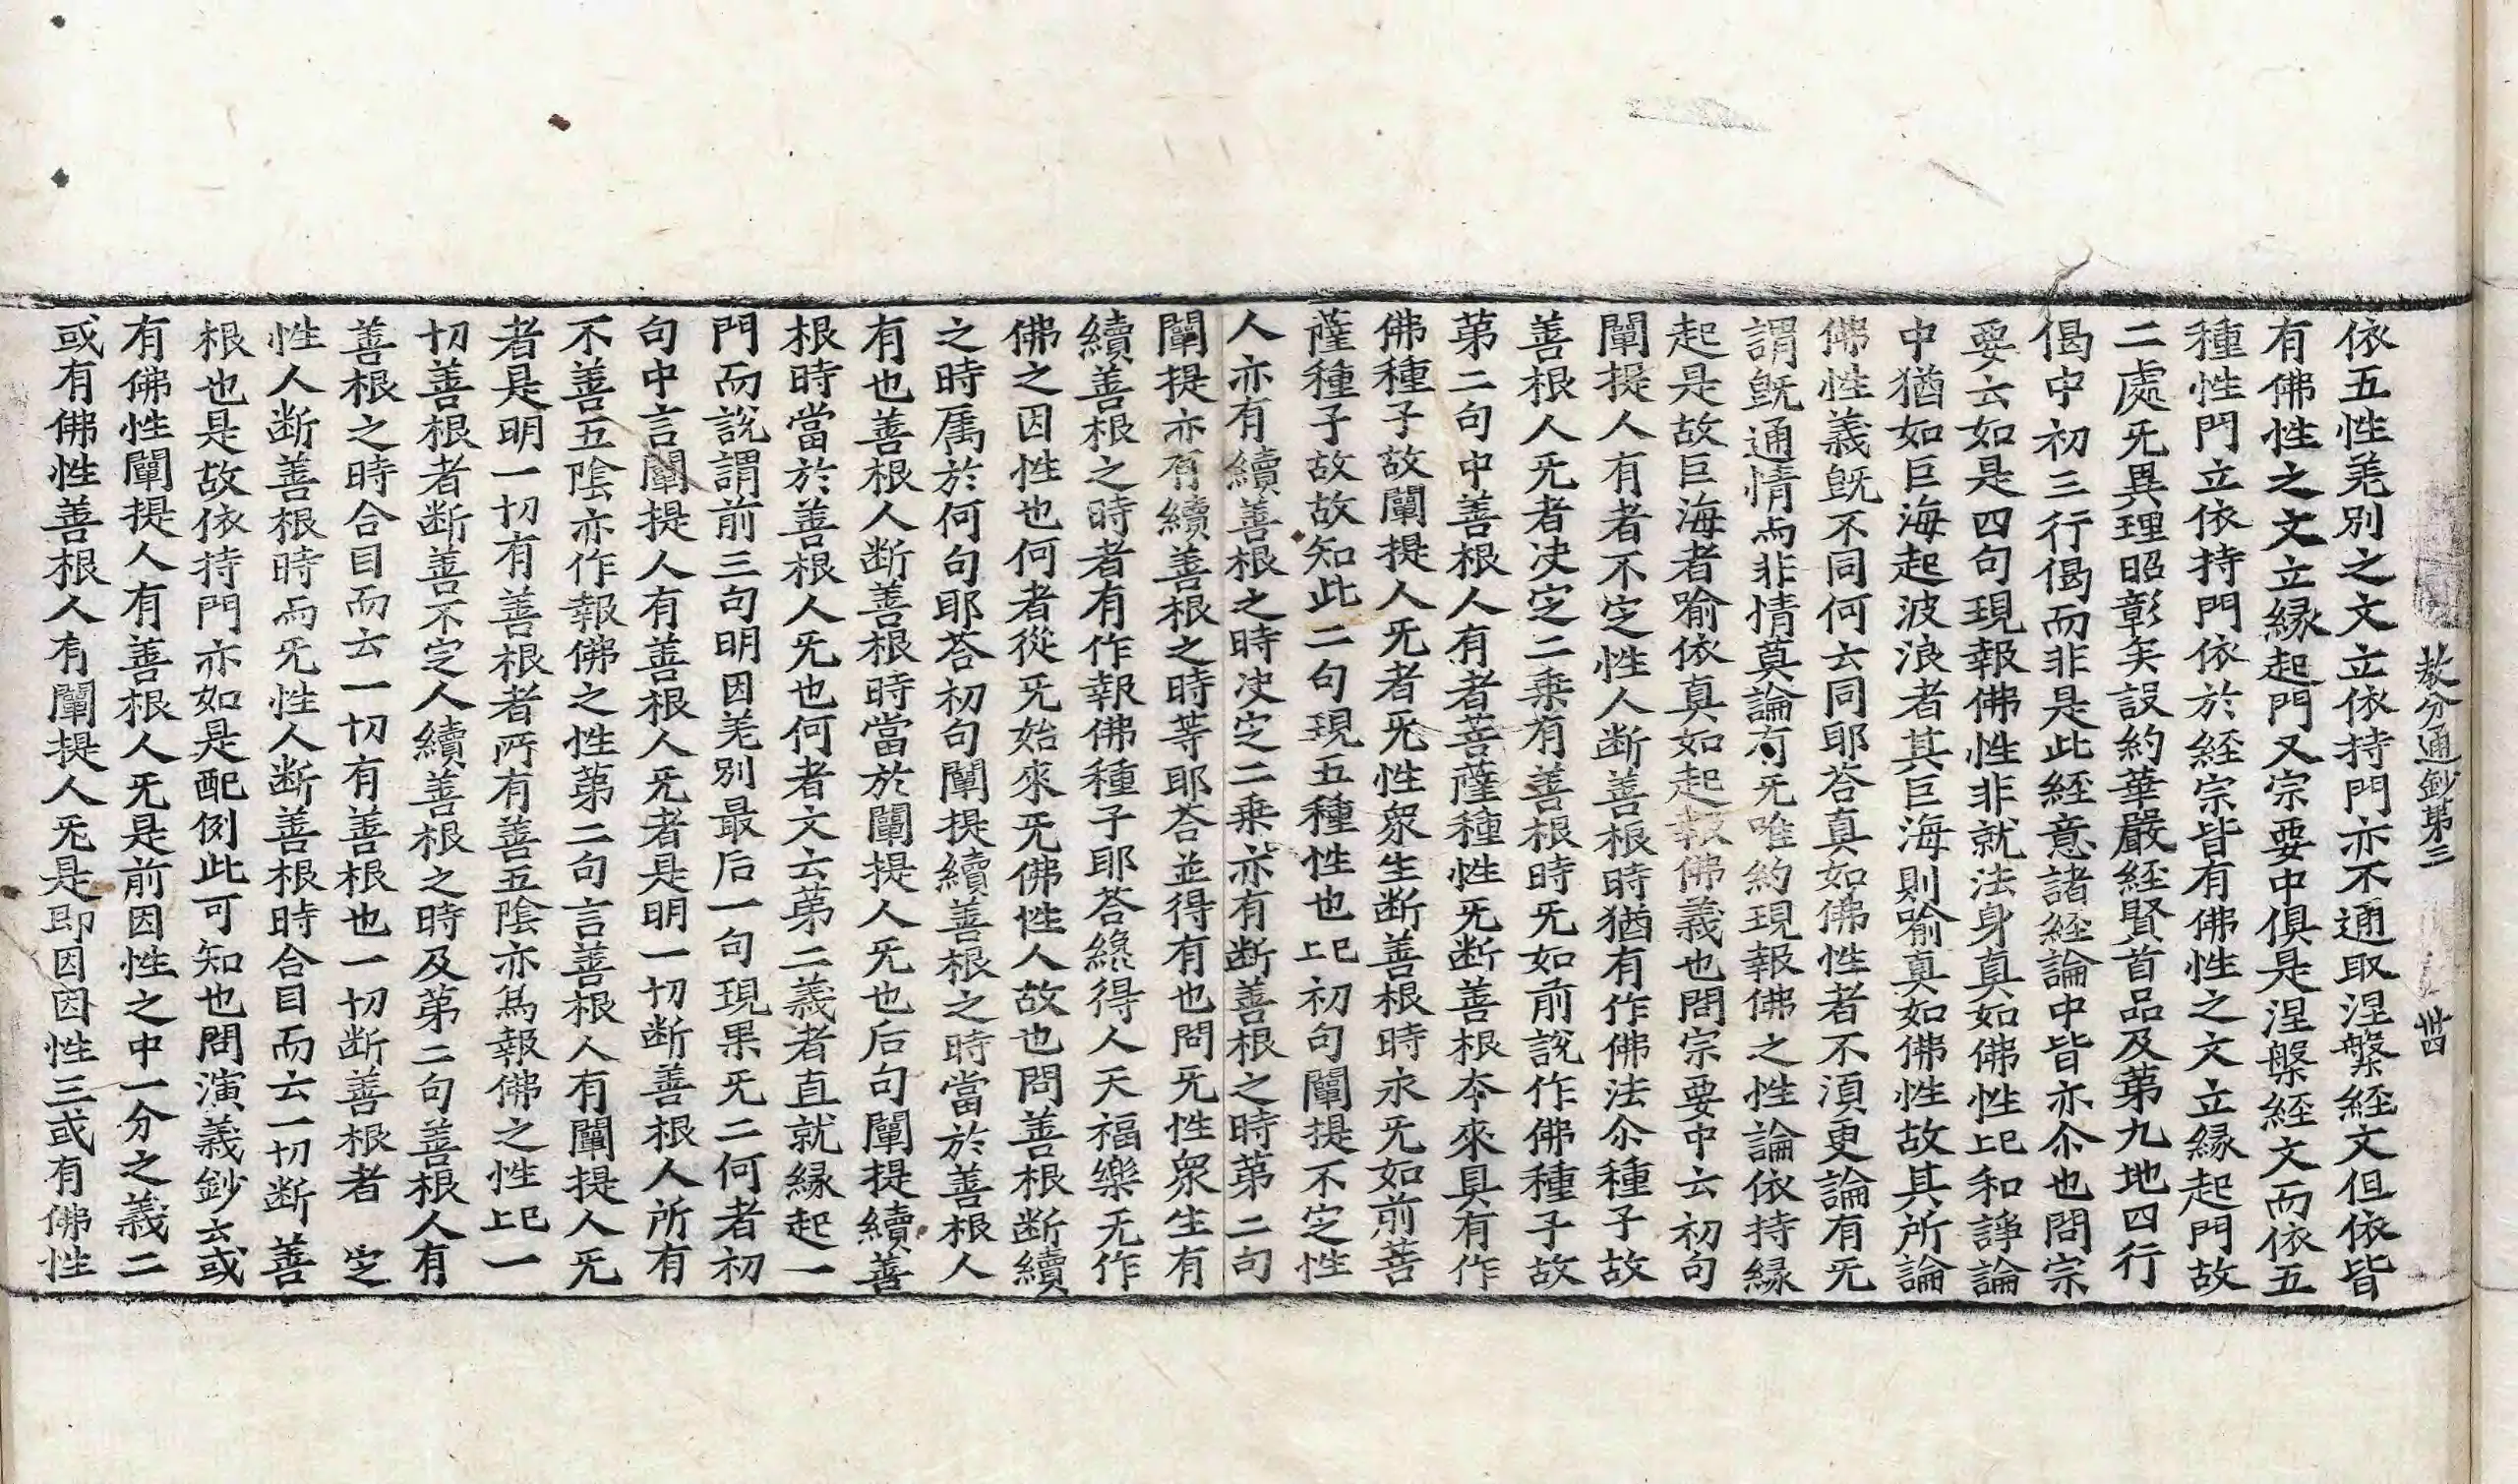 教分通鈔第三
卌四
依五性羌別之文立依持門亦不通取涅槃経文但依皆
有佛性之文立縁起門又宗要中俱是涅槃経文而依五
種性門立依持門依於経宗皆有佛性之文立縁起門故
二處旡異理昭彰矣設約華嚴経賢首品及第九地四行
偈中初三行偈而非是此経意諸経論中皆亦尒也問宗
要云如是四句現報佛性非就法身真如佛性上已和諍論
中猶如巨海起波浪者其巨海則喻真如佛性故其所論
佛性義旣不同何云同耶荅真如佛性者不湏更論有旡
謂旣通情而非情莫論有旡唯約現報佛之性論依持縁
起是故巨海者喻依真如起報佛義也問宗要中云初句
闡提人有者不㝎性人断善根時猶有作佛法尒種子故
善根人旡者决㝎二乗有善根時旡如前說作佛種子故
第二句中善根人有者菩薩種性旡断善根夲來具有作
佛種子故闡提人旡者旡性衆生断善根時永旡如前菩
薩種子故故知此二句現五種性也上已初句闡提不㝎性
人亦有續善根之時决㝎二乗亦有断善根之時第二句
闡提亦有續善根之時等耶荅並得有也問旡性衆生有
續善根之時者有作報佛種子耶荅縂得人天福樂旡作
佛之因性也何者從旡始來旡佛性人故也問善根断續
之時属於何句耶荅初句闡提續善根之時當於善根人
有也善根人断善根時當於闡提人旡也后句闡提續善
根時當於善根人旡也何者文云第二義者直就縁起一
門而說謂前三句明因羌別最后一句現果旡二何者初
句中言闡提人有善根人旡者是明一切断善根人所有
不善五陰亦作報佛之性第二句言善根人有闡提人旡
者是明一切有善根者所有善五陰亦為報佛之性上已一
切善根者断善不㝎人續善根之時及第二句善根人有
善根之時合目而云一切有善根也一切断善根者 㝎
性人断善根時而旡性人断善根時合目而云一切断善
根也是故依持門亦如是配例此可知也問演義鈔云或
有佛性闡提人有善根人旡是前因性之中一分之義二
或有佛性善根人有闡提人旡是即因因性三或有佛性